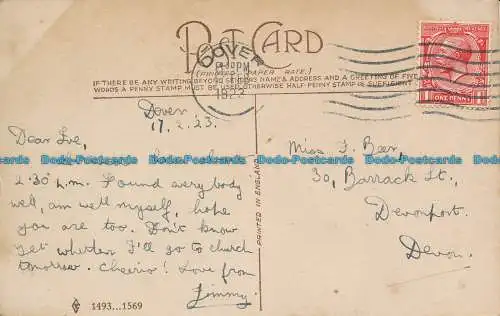 POST CARD
(PRINTED PAPER RATE.)
IF THERE BE ANY WRITING BEYOND SENDERS NAME & ADDRESS AND A GREETING OF FIVE
WORDS A PENNY STAMP MUST BE USED, OTHERWISE HALF-PENNY STAMP IS SUFFICIENT
DOVER
PM
1923
ONE PENNY
Dover.
17.2.23.
Dear
2.30 p.m. Found everybody
well, am well myself, hope
you are too. Don't know
yet whether I'll go to church
tomorrow. Cheerio! Love from
Jimmy.
PRINTED IN ENGLAND
Miss F. Beer,
30, Barrack St.,
Devonport.
Devon.
1493...1569
Dodo-Postcards Dodo-Postcards Dodo-Postcards Dodo-Postcards
Dodo-Postcards Dodo-Postcards Dodo-Postcards Dodo-Postcards